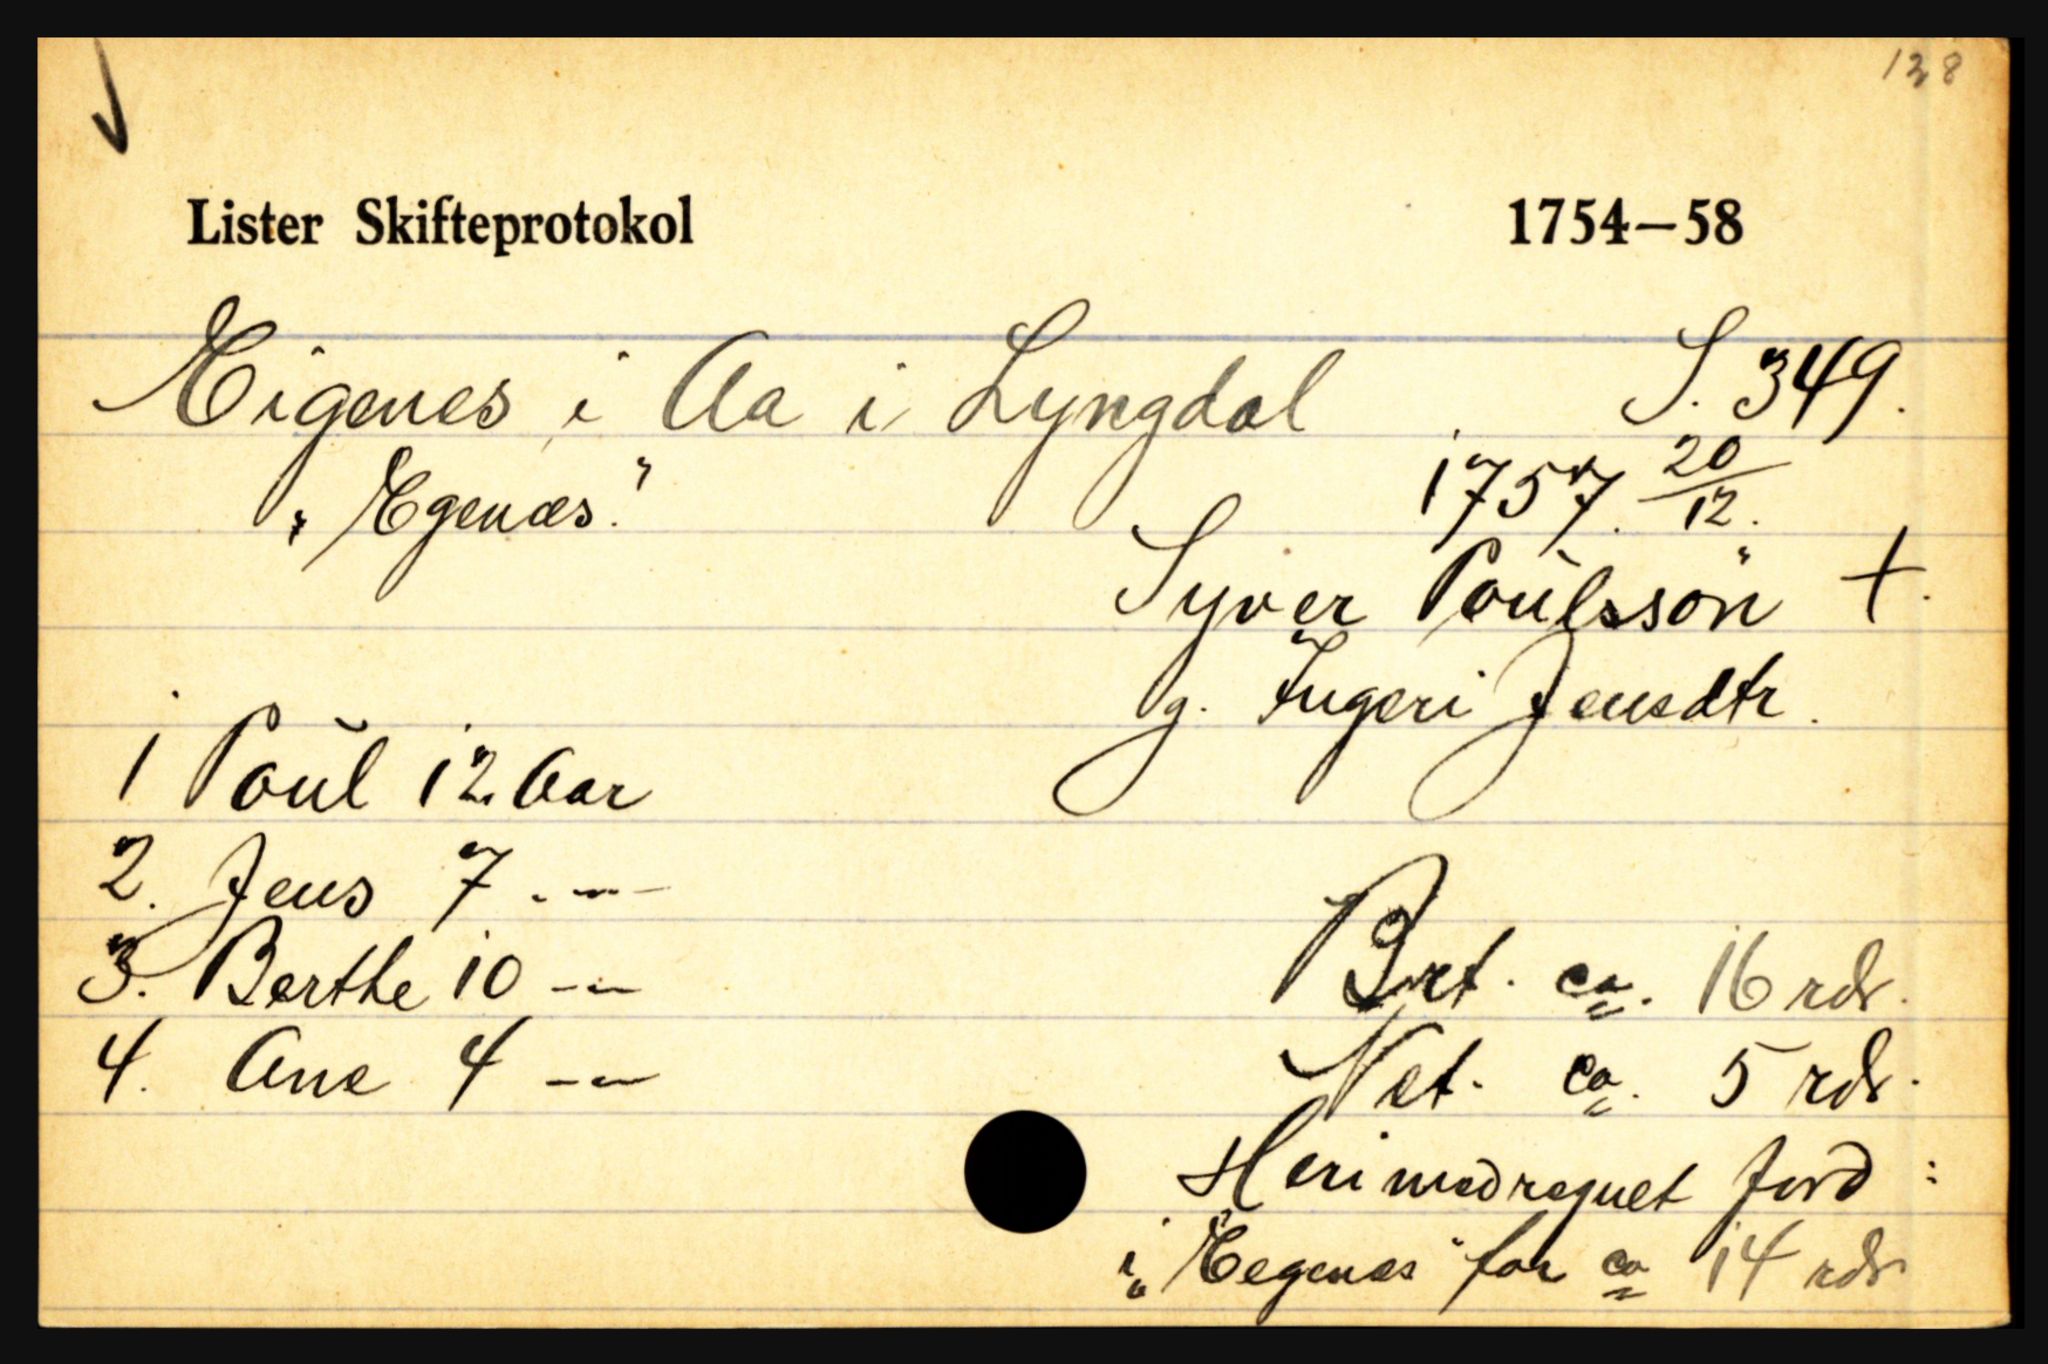 138
Lister Skifteprotokol 1754—58
Eigenes i Aa i Lyngdal S. 349.
"Egenæs." 1757. 20/12.
Syver Poulssön +.
g. Ingeri Jensdtr.
1 Poul 12 Aar
2. Jens 7 -"-
3. Berthe 10 -"-
4. Ane 4 -"-
Brt. ca. 16 rdr.
Net. ca. 5 rdr.
Heri medregnet Jord:
i "Eegenæs" for ca 14 rdr